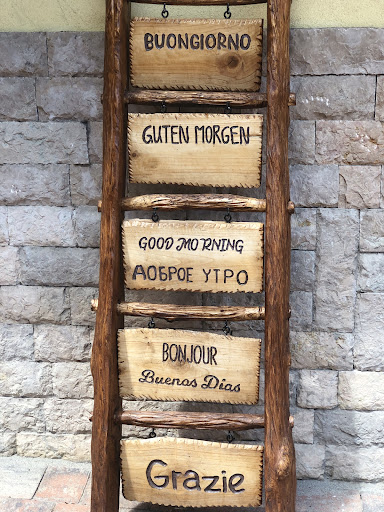 BUONGIORNO
GUTEN MORGEN
GOOD MORNING
ДОБРОЕ УТРО
BONJOUR
Buenos Dias
Grazie